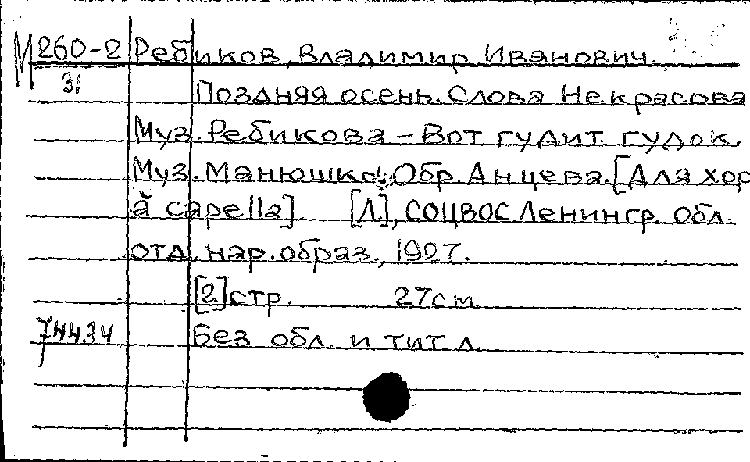 М260-2 Ребиков, Владимир Иванович.
3!
Поздняя осень. Слова Некрасова
Муз. Ребикова – Вот гудит гудок.
Муз. Манюшко. Обр. Анцева. [Для хор
a capella] [Л], СОЦВОС Ленингр. обл.
отд. нар. образ., 1927.
[2] стр. 27см
74434 Без обл. и тит. л.